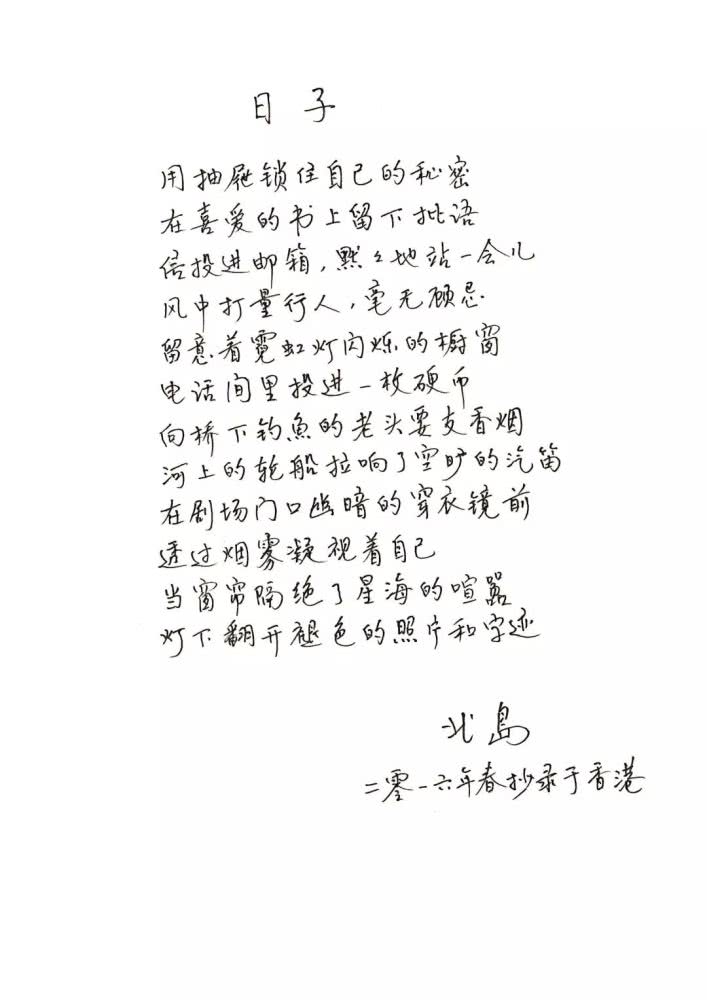 日子
用抽屉锁住自己的秘密
在喜爱的书上留下批语
信投进邮箱，默々地站一会儿
风中打量行人，毫无顾忌
留意着霓虹灯闪烁的橱窗
电话间里投进一枚硬币
向桥下钓魚的老头要支香烟
河上的轮船拉响了空旷的汽笛
在剧场门口幽暗的穿衣镜前
透过烟雾凝视着自己
当窗帘隔绝了星海的喧嚣
灯下翻开褪色的照片和字迹
北島
二零一六年春抄录于香港